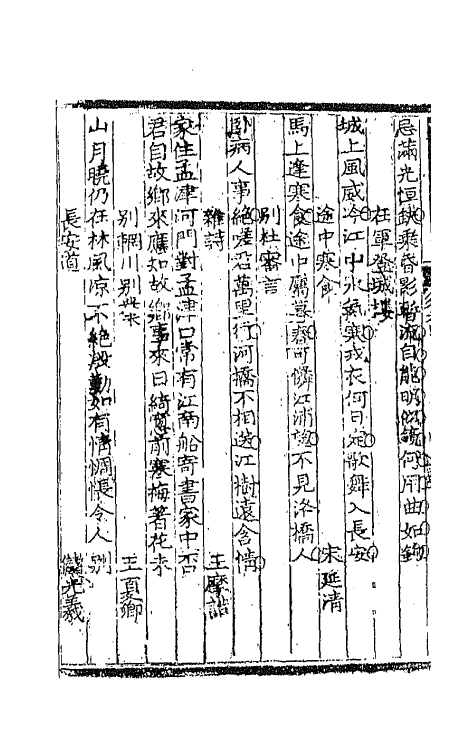 忌滿光恒缺乘昏影暫流自能明似鏡何用曲如鉤
在軍登城樓
城上風威冷江中水氣寒戎衣何日定歌舞入長安
途中寒食 宋延清
馬上逢寒食途中屬暮春可憐江浦望不見洛橋人
別杜審言
臥病人事絕嗟君萬里行河橋不相送江樹遠含情
雜詩 王摩詰
家住孟津河門對孟津口常有江南船寄書家中否
君自故鄉來應知故鄉事來日綺窗前寒梅著花未
別輞川別業 王夏卿
山月曉仍在林風凉不絕殷勤如有情惆悵令人別
長安道 儲光羲